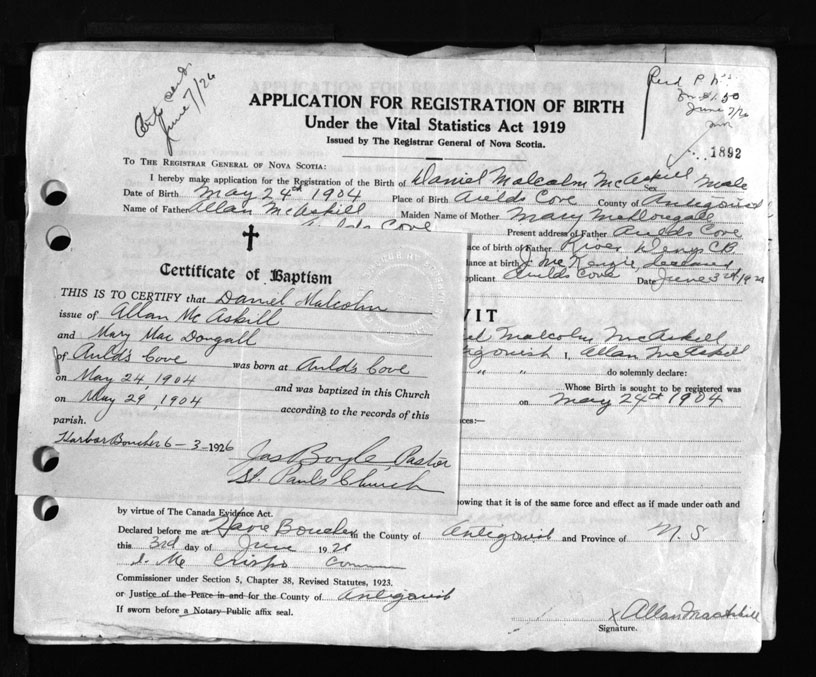 June 7/26
$1.50
June 7/26
1892
APPLICATION FOR REGISTRATION OF BIRTH
Under the Vital Statistics Act 1919
Issued by The Registrar General of Nova Scotia.
TO THE REGISTRAR GENERAL OF NOVA SCOTIA:
I hereby make application for the Registration of the Birth of Daniel Malcolm McAskill Sex Male
Date of Birth May 24th 1904 Place of Birth Aulds Cove County of Antigonish
Name of Father Allan McAskill Maiden Name of Mother Mary McDougall
Aulds Cove Present address of Father Aulds Cove
ace of birth of Father River Denys C.B.
dance at birth J. McKenzie, deceased
plicant Aulds Cove Date June 3rd, 19
Certificate of Baptism
THIS IS TO CERTIFY that Daniel Malcolm
issue of Allan Mc Askill
and Mary Mac Dougall
of Auld's Cove was born at Auld's Cove
on May 24, 1904 and was baptized in this Church
on May 29, 1904 according to the records of this
parish.
Harbor Boucher 6-3-1926 Jas Boyle, Pastor
St. Pauls Church
VIT
Malcolm McAskill
igonish I, Allan McAskill
" " do solemnly declare:
Whose Birth is sought to be registered was
on May 24th 1904
ces:—
owing that it is of the same force and effect as if made under oath and
by virtue of The Canada Evidence Act.
Declared before me at Havre Boucher in the County of Antigonish and Province of N. S
this 3rd day of June 19 26
Commissioner under Section 5, Chapter 38, Revised Statutes, 1923.
or Justice of the Peace in and for the County of Antigonish
If sworn before a Notary Public affix seal.
x Allan MacAskill
Signature.